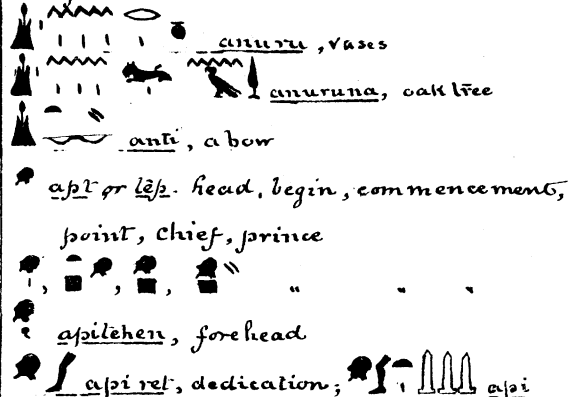 anuru, vases
anuruna, oak tree
anti, a bow
apt or tēp. head, begin, commencement,
point, chief, prince
, , , " " "
apitehen, forehead
api ret, dedication; api